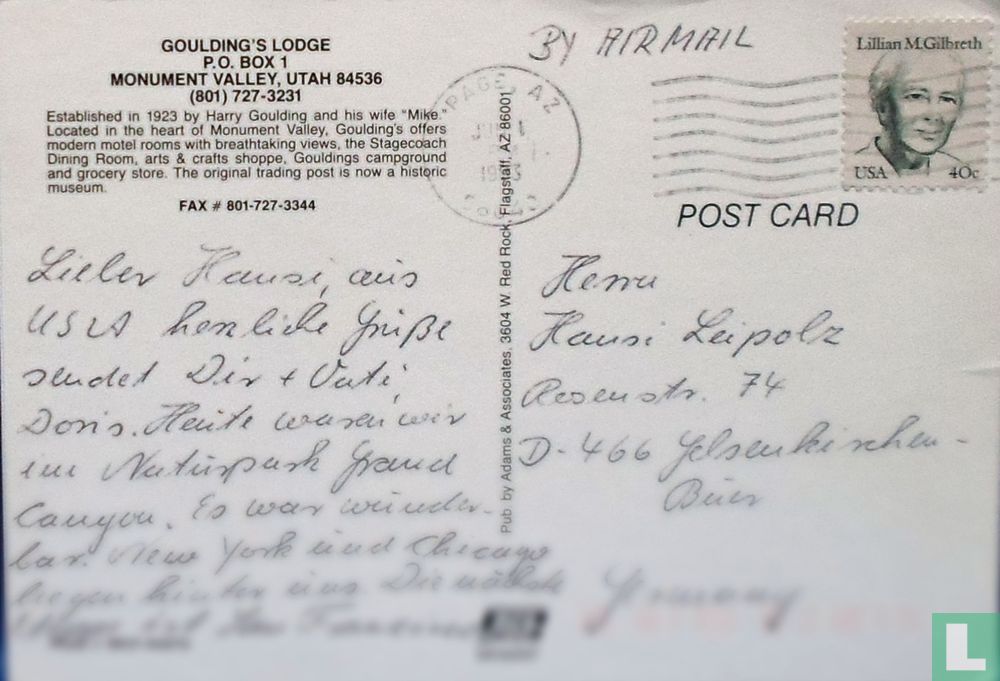 GOULDING'S LODGE
P.O. BOX 1
MONUMENT VALLEY, UTAH 84536
(801) 727-3231
Established in 1923 by Harry Goulding and his wife "Mike."
Located in the heart of Monument Valley, Goulding's offers
modern motel rooms with breathtaking views, the Stagecoach
Dining Room, arts & crafts shoppe, Gouldings campground
and grocery store. The original trading post is now a historic
museum.
FAX # 801-727-3344
Lieber Hansi, aus
USA herzliche Grüße
sendet Dir + Vati,
Doris. Heute waren wir
im Naturpark Grand
Canyon. Es war wunder-
bar. New York und Chicago
liegen hinter uns. Die nächste
ist San
Pub by Adams & Associates, 3604 W. Red Rock, Flagstaff, AZ 86001
BY AIRMAIL
PAGE, AZ
Lillian M. Gilbreth
USA 40c
POST CARD
Herrn
Hansi Leipolz
Rosenstr. 74
D-466 Gelsenkirchen-
Buer
Germany
L